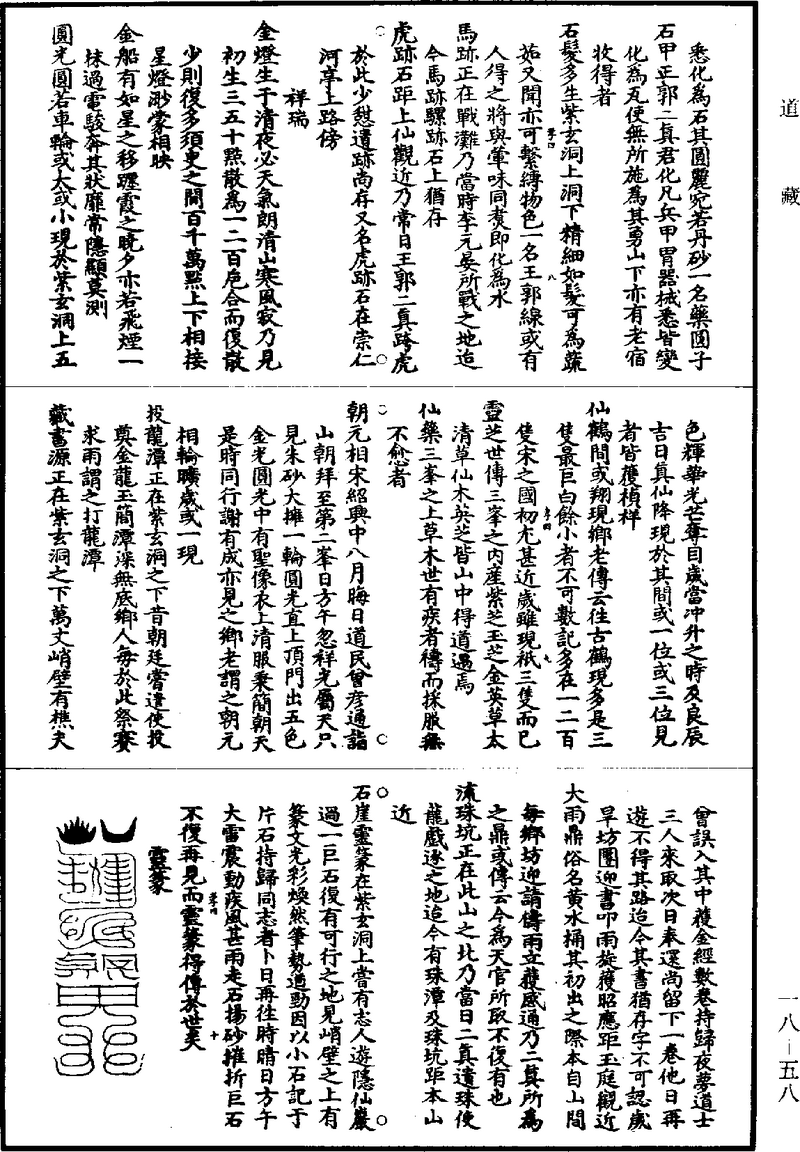 道藏
悉化為石其圓麗宛若丹砂一名藥圓子
石甲正郭二真君化凡兵甲胄器械悉皆變
化為瓦使無所施為其勇山下亦有老宿
收得者
石髮多生紫玄洞上洞下精細如髮可為蔬
茹又聞亦可繫縛物色一名王郭線或有
人得之將與葷味同煑即化為水
馬跡正在戰灘乃當時李元晏所戰之地迨
今馬跡騾跡石上猶存
虎跡石距上仙觀近乃常日王郭二真跨虎
於此少憇遺跡尚存又名虎跡石在崇仁
河亭上路傍
祥瑞
金燈生于清夜必天氣朗清山寒風寂乃見
初生三五十點散為一二百巵合而復散
少則復多須更之間百千萬點上下相接
星燈渺濛相映
金船有如星之移躔霞之曉夕亦若飛煙一
抹過電駿奔其狀靡常隱顯莫測
圓光圓若車輪或大或小現於紫玄洞上五
色輝華光芒奪目歲當冲升之時及良辰
吉日真仙降現於其間或一位或三位見
者皆獲禎祥
仙鶴間或翔現鄉老傳云往古鶴現多是三
隻最巨白餘小者不可數記多在一二百
隻宋之國初尤甚近歲雖現秖三隻而已
靈芝世傳三峯之內產紫芝玉芝金英草太
清草仙木英芝皆山中得道遇焉
仙藥三峯之上草木世有疾者禱而採服無
不愈者
朝元相宋紹興中八月晦日道民曾彦通詣
山朝拜至第二峯日方午忽祥光屬天只
見朱砂大擁一輪圓光直上頂門出五色
金光圓光中有聖像衣上清服秉簡朝天
是時同行謝有成亦見之鄉老謂之朝元
相輪曠歲或一現
投龍潭正在紫玄洞之下昔朝廷嘗遣使投
奠金龍玉簡潭深無底鄉人每於此祭賽
求雨謂之打龍潭
藏書源正在紫玄洞之下萬丈峭壁有樵夫
曾誤入其中獲金經數卷持歸夜夢道士
三人來取次日奉還尚留下一卷他日再
遊不得其路迨今其書猶存字不可認歲
旱坊團迎書叩雨旋獲昭應距玉庭觀近
大雨鼎俗名黄水桶其初出之際本自山間
每鄉坊迎請儔雨立獲感通乃二真所為
之鼎或傳云今為天官所取不復有也
流珠坑正在此山之北乃當日二真遺珠使
龍戲逐之地迨今有珠潭及珠坑距本山
近
石崖靈篆在紫玄洞上嘗有志人遊隱仙巖
過一巨石復有可行之地見峭壁之上有
篆文光彩煥然筆勢遒勁因以小石記于
片石持歸同志者卜日再往時晴日方午
大雷震動疾風甚雨走石揚砂摧折巨石
不復再見而靈篆得傳於世矣
靈篆
一八－五八